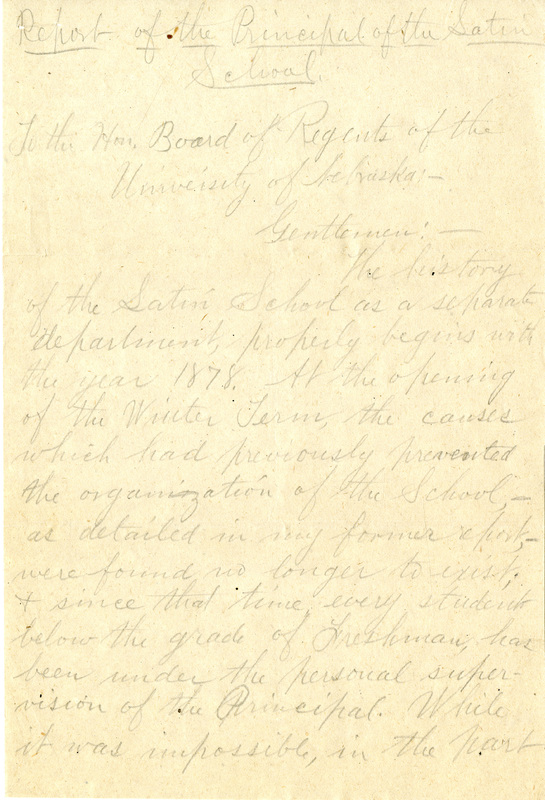 Report of the Principal of the Latin
School.
To the Hon. Board of Regents of the
University of Nebraska:—
Gentlemen:—
The history
of the Latin School as a separate
department, properly begins with
the year 1878. At the opening
of the Winter Term, the causes
which had previously prevented
the organization of the School,—
as detailed in my former report,—
were found no longer to exist;
& since that time, every student
below the grade of Freshman, has
been under the personal super-
vision of the Principal. While
it was impossible, in the part